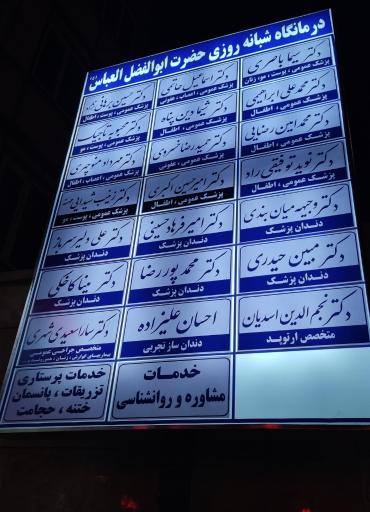 درمانگاه شبانه روزی حضرت ابوالفضل العباس
دکتر سیما باصری
پزشک عمومی، پوست، مو، زنان
دکتر اسماعیل حاتمی
پزشک عمومی، اعصاب، عفونی
دکتر حسین
پزشک عمومی، پوست، اطفال
دکتر محمدعلی ابراهیمی
پزشک عمومی، اطفال
دکتر شیما دین پناه
پزشک عمومی، اطفال
دکتر محبوبه
پزشک عمومی، پوست، مو
دکتر محمدامین رضایی
پزشک عمومی، اطفال
دکتر حمیدرضا خسروی
پزشک عمومی، عفونی
دکتر مهرداد منوچهری
پزشک عمومی، اعصاب، اطفال
دکتر نوید توفیقی راد
پزشک عمومی، اطفال
دکتر امیرحسین اکبری
پزشک عمومی، اطفال
دکتر
پزشک عمومی، پوست، مو
دکتر وجیهه میان بندی
دندان پزشک
دکتر امیر فرهاد حسینی
دندان پزشک
دکتر علی دلیر سرباز
دندان پزشک
دکتر مبین حیدری
دندان پزشک
دکتر محمد پور رضا
دندان پزشک
دکتر مینا کاخکی
دندان پزشک
دکتر نجم الدین اسدیان
متخصص ارتوپد
احسان علیزاده
دندان ساز تجربی
دکتر سارا سعیدی
متخصص جراحی عمومی
خدمات
مشاوره و روانشناسی
خدمات پرستاری
تزریقات، پانسمان
ختنه، حجامت